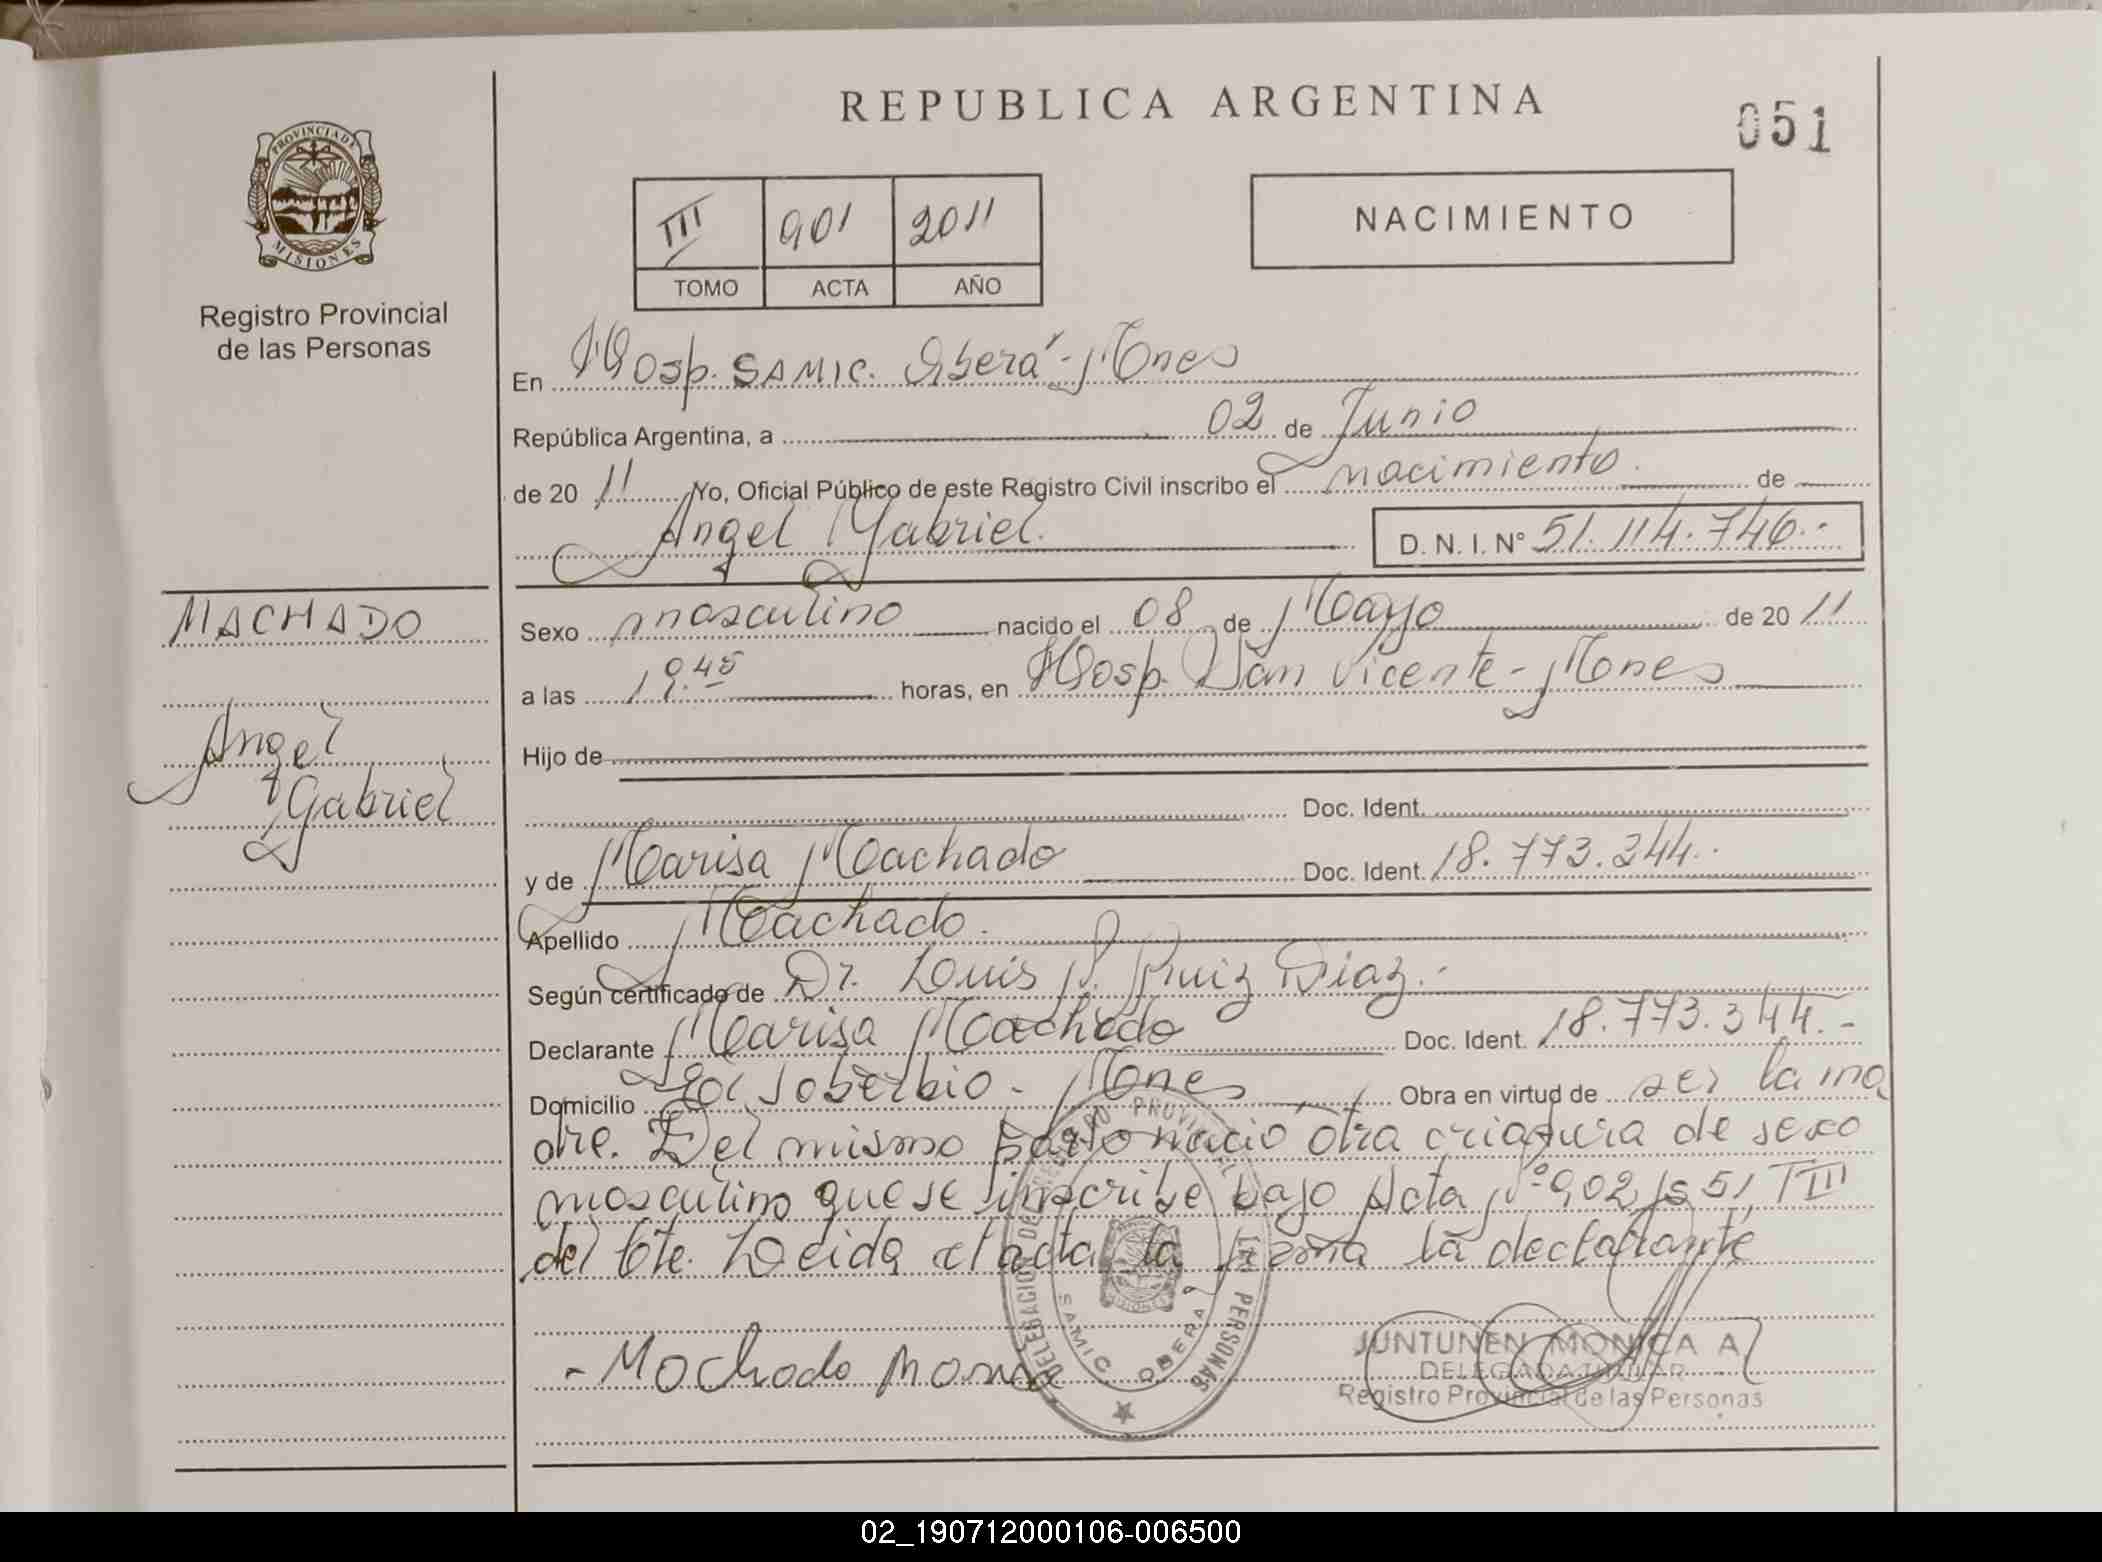 REPUBLICA ARGENTINA
051
PROVINCIA DE
MISIONES
Registro Provincial
de las Personas
III 901 2011
TOMO ACTA AÑO
NACIMIENTO
En Hosp. SAMIC. Oberá - Mnes
República Argentina, a 02 de Junio
de 20 11 Yo, Oficial Público de este Registro Civil inscribo el nacimiento de
Angel Gabriel. D. N. I. N° 51.114.746.-
MACHADO
Angel
Gabriel
Sexo masculino nacido el 08 de Mayo de 20 11
a las 19.45 horas, en Hosp. San Vicente - Mnes
Hijo de
Doc. Ident.
y de Marisa Machado Doc. Ident. 18.773.344.-
Apellido Machado.
Según certificado de Dr. Luis P. Ruiz Diaz.-
Declarante Marisa Machado Doc. Ident. 18.773.344.-
Domicilio El Soberbio - Mnes Obra en virtud de ser la ma
dre. Del mismo parto nació otra criatura de sexo
masculino que se inscribe bajo Acta Nº 902 fs 51, T III
del cte. Leida el acta, la firma la declarante
- Machado Marisa
DELEGACION DEL REGISTRO PROVINCIAL DE LAS PERSONAS
SAMIC OBERA
MISIONES
JUNTUNEN MONICA A
DELEGADA TITULAR
Registro Provincial de las Personas
02_190712000106-006500